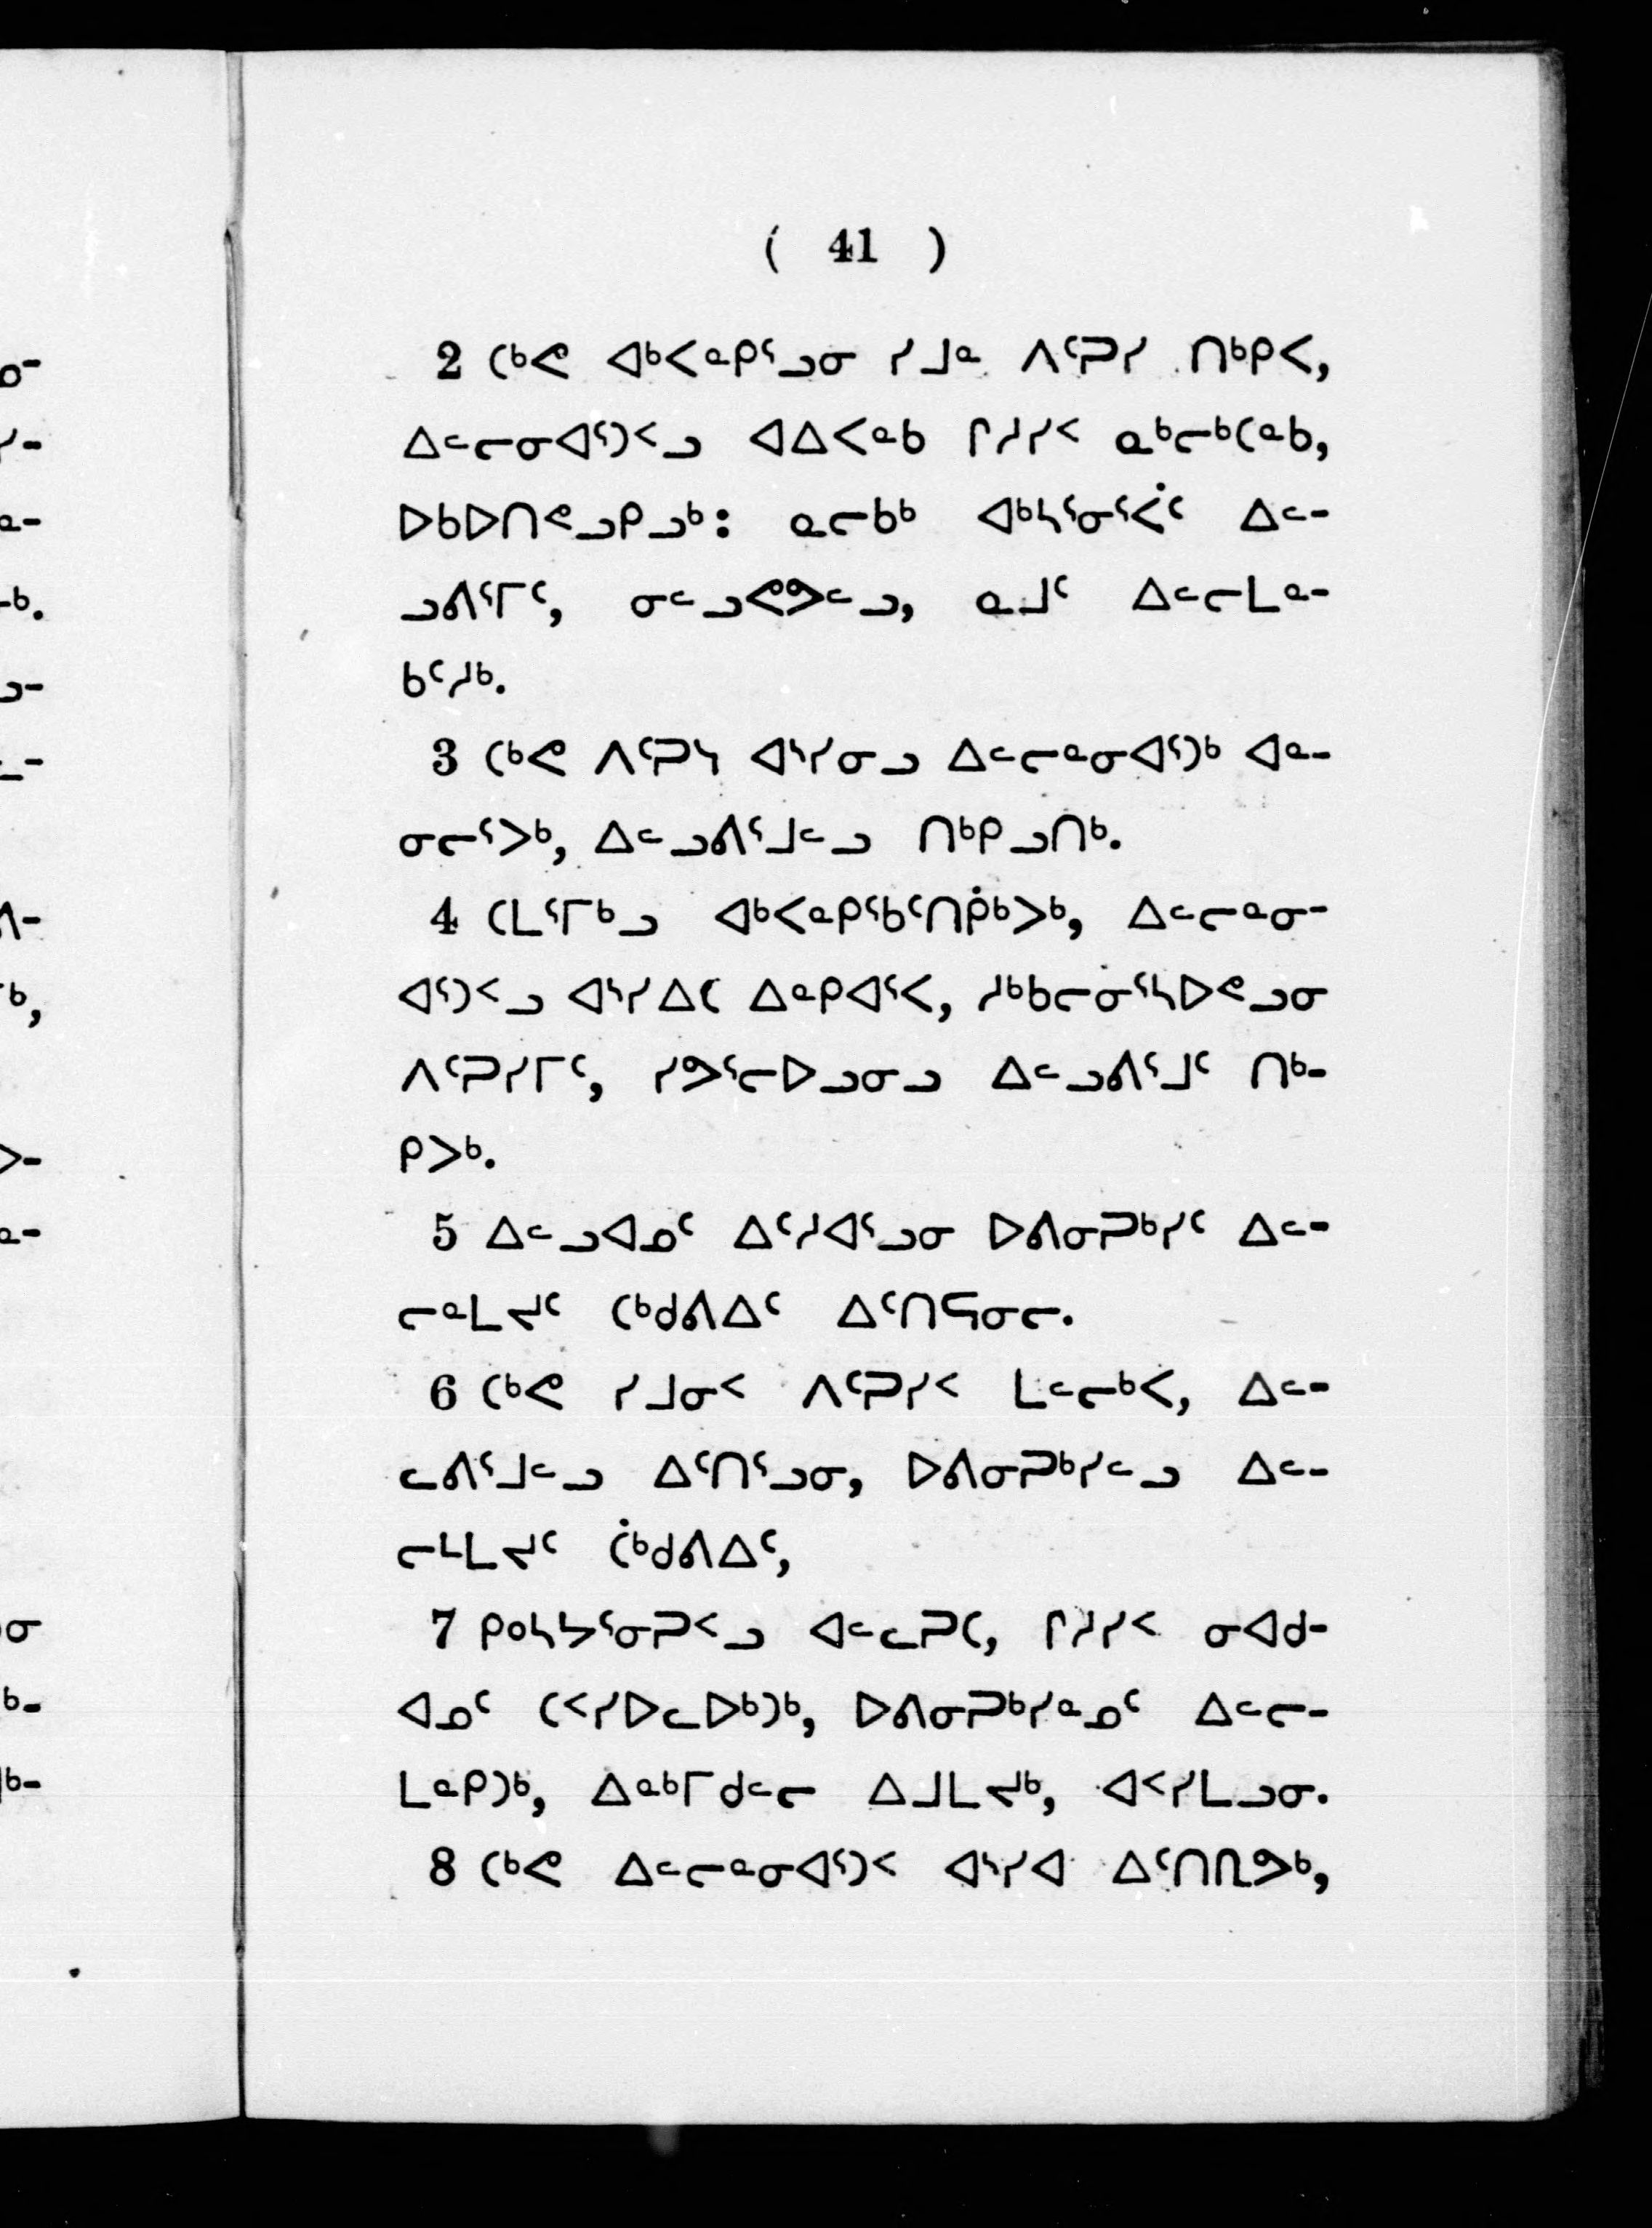 ( 41 )
2 ᑕᒃᕙ ᐊᒃᐸᓇᑭᕐᓗᓂ ᓯᒧᓇ ᐱᑦᑐᓯ ᑎᒃᑭᐸ,
ᐃᓪᓕᓂᐊᕐᑐᑉᓗ ᐊᐃᐸᓐᑲ ᒋᓱᓯᑉ ᓇᒃᓕᒃᑕᓐᑲ,
ᐅᑲᐅᑎᕝᓗᑭᓗᒃ: ᓇᓕᑲᒃ ᐊᒃᓴᕐᓂᕐᐹᑦ ᐃᓪ-
ᓗᕕᕐᒥᑦ, ᓂᓪᓗᕙᕗᓪᓗ, ᓇᒧᑦ ᐃᓪᓕᒪᓐ-
ᑲᑦᓱᒃ.
3 ᑕᒃᕙ ᐱᑦᑐᓭ ᐊᔅᓯᓂᓗ ᐃᓪᓕᓐᓂᐊᕐᑐᒃ ᐊᓐ-
ᓂᓕᕐᐳᒃ, ᐃᓪᓗᕕᕐᒧᓪᓗ ᑎᒃᑭᓗᑎᒃ.
4 ᑕᒪᕐᒥᒃᓗ ᐊᒃᐸᓐᑭᕐᑲᑦᑎᑮᒃᐳᒃ, ᐃᓪᓕᓐᓂ-
ᐊᕐᑐᑉᓗ ᐊᔅᓯᐃᑕ ᐃᓐᑭᐊᕐᐸ, ᓱᒃᑲᓕᓂᕐᓴᐅᕝᓗᓂ
ᐱᑦᑐᓯᒥᑦ, ᓯᕗᕐᓕᐅᓗᓂᓗ ᐃᓪᓗᕕᕐᒧᑦ ᑎᒃ-
ᑭᐳᒃ.
5 ᐃᓪᓗᐊᓄᑦ ᐃᑦᓱᐊᕐᓗᓂ ᐅᕕᓂᑐᒃᓯᑦ ᐃᓪ-
ᓕᓐᒪᔪᑦ ᑕᒃᑯᕕᐃᑦ ᐃᑦᑎᕋᓂᓕ.
6 ᑕᒃᕙ ᓯᒧᓂᑉ ᐱᑦᑐᓯᑉ ᒪᓪᓕᒃᐸ, ᐃᓪ-
ᓚᕕᕐᒧᓪᓗ ᐃᑦᑎᕐᓗᓂ, ᐅᕕᓂᑐᒃᓯᓪᓗ ᐃᓪ-
ᓕᒻᒪᔪᑦ ᑖᒃᑯᕕᐃᑦ,
7 ᑭᐤᓴᔭᕐᓂᑐᑉᓗ ᐊᓪᓚᑐᑕ, ᒋᓱᓯᑉ ᓂᐊᑯ-
ᐊᓄᑦ ᑕᑉᓯᐅᓚᐅᒃᑐᒃ, ᐅᕕᓂᑐᒃᓯᓐᓄᑦ ᐃᓪᓕ-
ᒪᓐᑭᑐᒃ, ᐃᓐᒃᒥᑯᓪᓕ ᐃᒧᒪᔪᒃ, ᐊᑉᓯᒪᓗᓂ.
8 ᑕᒃᕙ ᐃᓪᓕᓐᓂᐊᕐᑐᑉ ᐊᔅᓯᐊ ᐃᑦᑎᕆᕗᒃ,